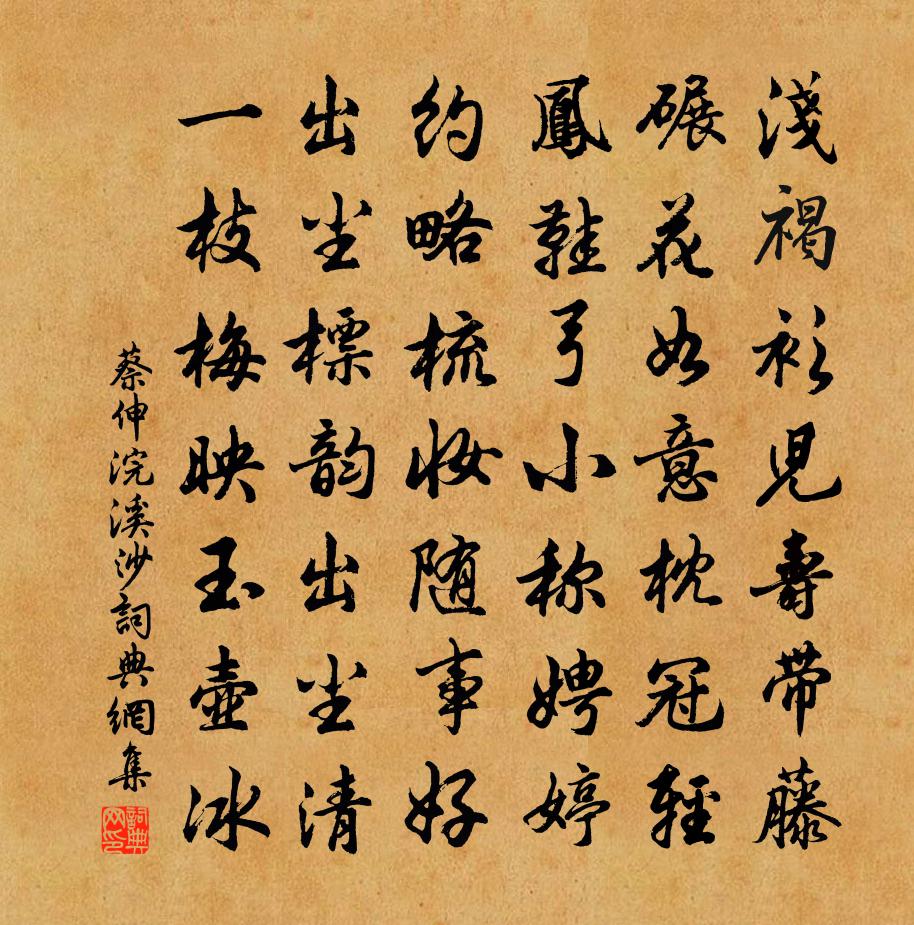 淺褐衫兒壽带藤
碾花如意枕冠輕
鳳鞋弓小称娉婷
约略梳妆随事好
出尘標韵出尘清
一枝梅映玉壺冰
蔡伸浣溪沙詞典網集
詞典网印